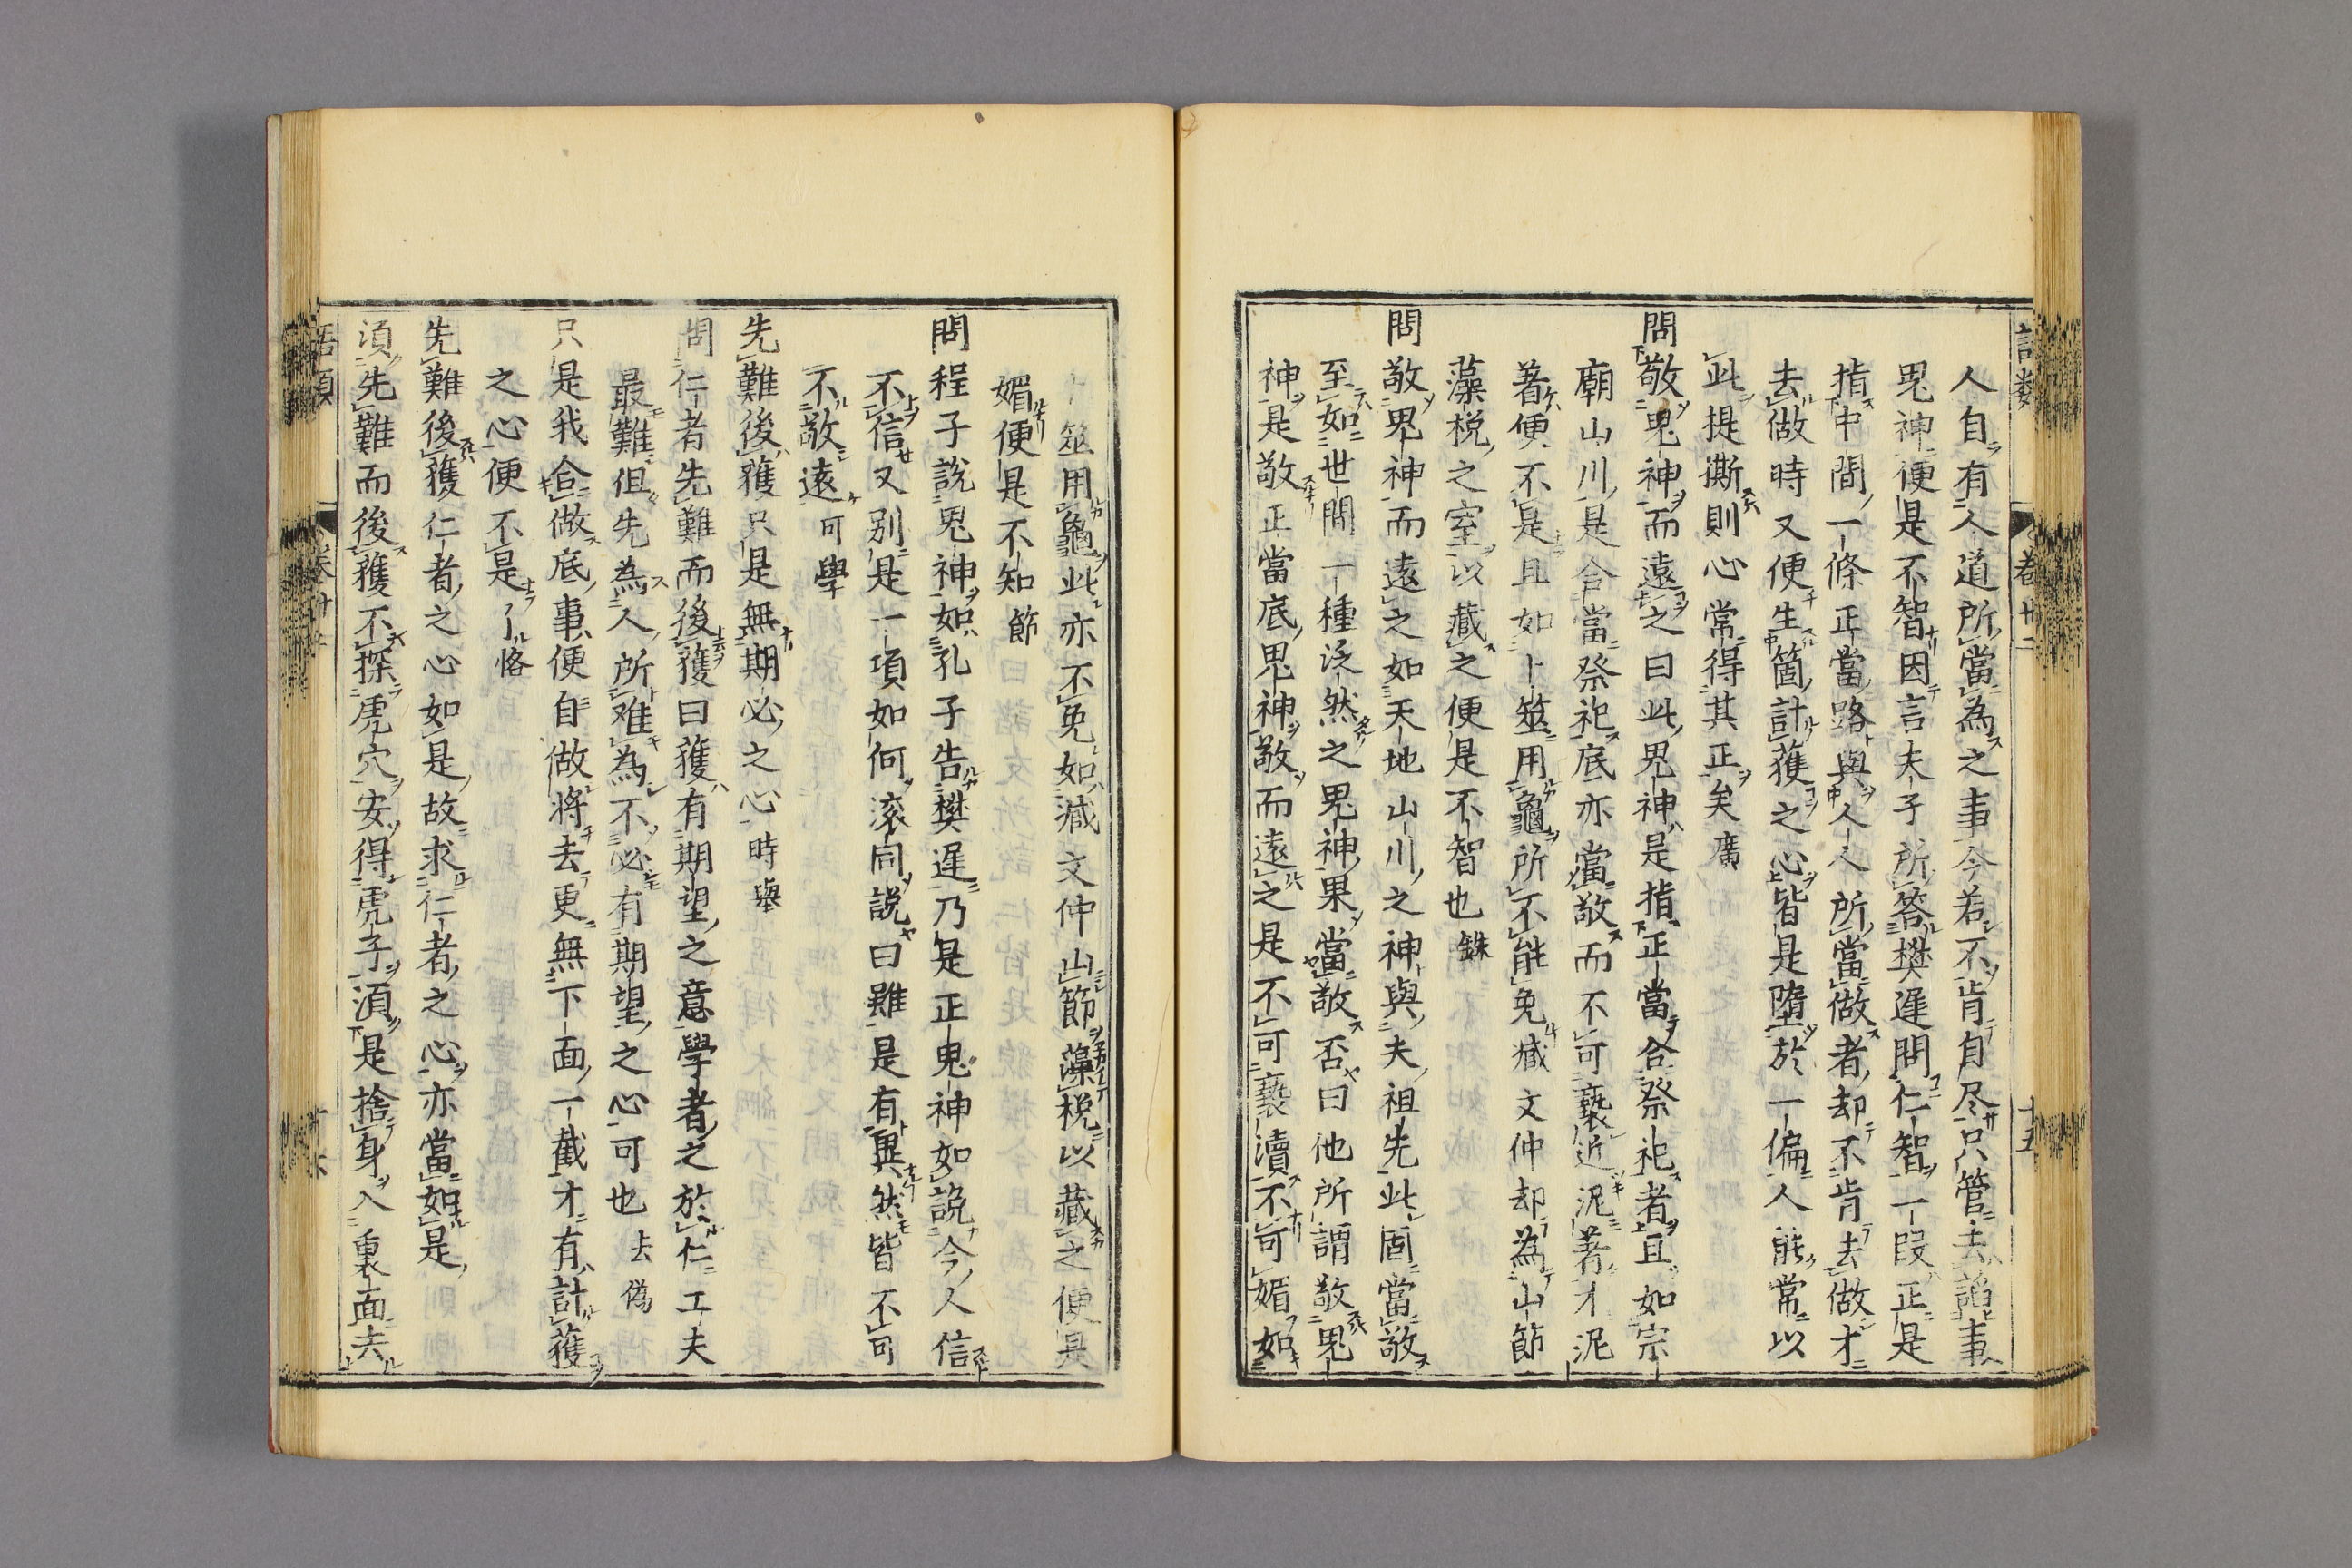 人自有人道所當為之事今若不肯自尽只管去諂事
鬼神便是不智因言夫子所答樊遲問仁智一段正是
指中間一條正當路與人人所當做者却不肯去做才
去做時又便生箇計獲之心皆是墮於一偏人能常以
此提撕則心常得其正矣廣
問敬鬼神而遠之曰此鬼神是指正當合祭祀者且如宗
廟山川是合當祭祀底亦當敬而不可褻近泥著才泥
著便不是且如卜筮用龜所不能免臧文仲却為山節
藻梲之室以藏之便是不智也銖
問敬鬼神而遠之如天地山川之神與夫祖先此固當敬
至如世間一種泛然之鬼神果當敬否曰他所謂敬鬼
神是敬正當底鬼神敬而遠之是不可褻瀆不可媚如
卜筮用龜此亦不免如臧文仲山節藻梲以藏之便是
媚便是不知節
問程子說鬼神如孔子告樊遲乃是正鬼神如說今人信
不信又别是一項如何滚同說曰雖是有異然皆不可
不敬遠可學
先難後獲只是無期必之心時舉
問仁者先難而後獲曰獲有期望之意學者之於仁工夫
最難但先為人所难為不必有期望之心可也去偽
只是我合做底事便自做将去更無下面一截才有計獲
之心便不是了恪
先難後獲仁者之心如是故求仁者之心亦當如是
須先難而後獲不探虎穴安得虎子須是捨身入裏面去
語類
卷廿二
十五